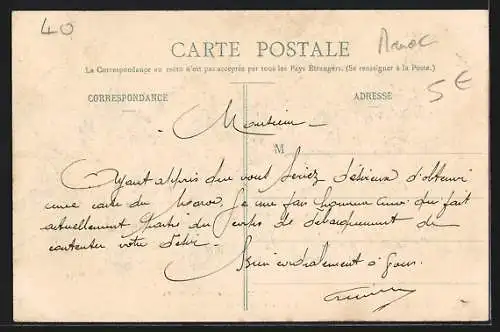 40
Maroc
CARTE POSTALE
La Correspondance au recto n'est pas acceptée par tous les Pays Étrangers. (Se renseigner à la Poste.)
5€
CORRESPONDANCE
ADRESSE
Monsieur
M
Ayant appris que vous seriez désireux d'obtenir
une carte du Maroc, je me fais honneur du fait
actuellement partie du corps de débarquement de
contenter votre désir.
Bien cordialement à vous.